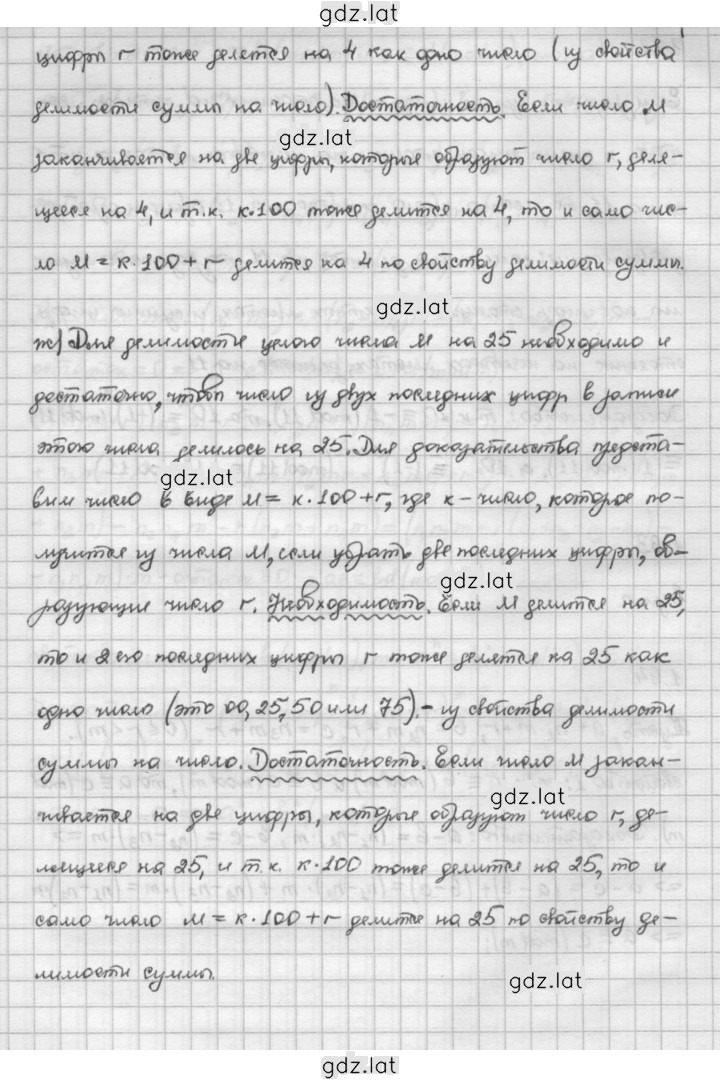 gdz.lat
цифры r тоже делятся на 4 как одно число (из свойства
делимости суммы на число). Достаточность. Если число М
gdz.lat
заканчивается на две цифры, которые образуют число r, деля-
щееся на 4, и т.к. к·100 тоже делится на 4, то и само чис-
ло М = к·100 + r делится на 4 по свойству делимости суммы.
gdz.lat
ж) Для делимости целого числа М на 25 необходимо и
достаточно, чтобы число из двух последних цифр в записи
этого числа делилось на 25. Для доказательства предста-
gdz.lat
вим число в виде М = к·100 + r, где к – число, которое по-
лучится из числа М, если убрать две последних цифры, об-
gdz.lat
разующие число r. Необходимость. Если М делится на 25,
то и 2 его последних цифры r тоже делятся на 25 как
одно число (это 00, 25, 50 или 75). – из свойства делимости
суммы на число. Достаточность. Если число М закан-
gdz.lat
чивается на две цифры, которые образуют число r, де-
лящееся на 25, и т.к. к·100 тоже делится на 25, то и
само число М = к·100 + r делится на 25 по свойству де-
лимости суммы.
gdz.lat
gdz.lat